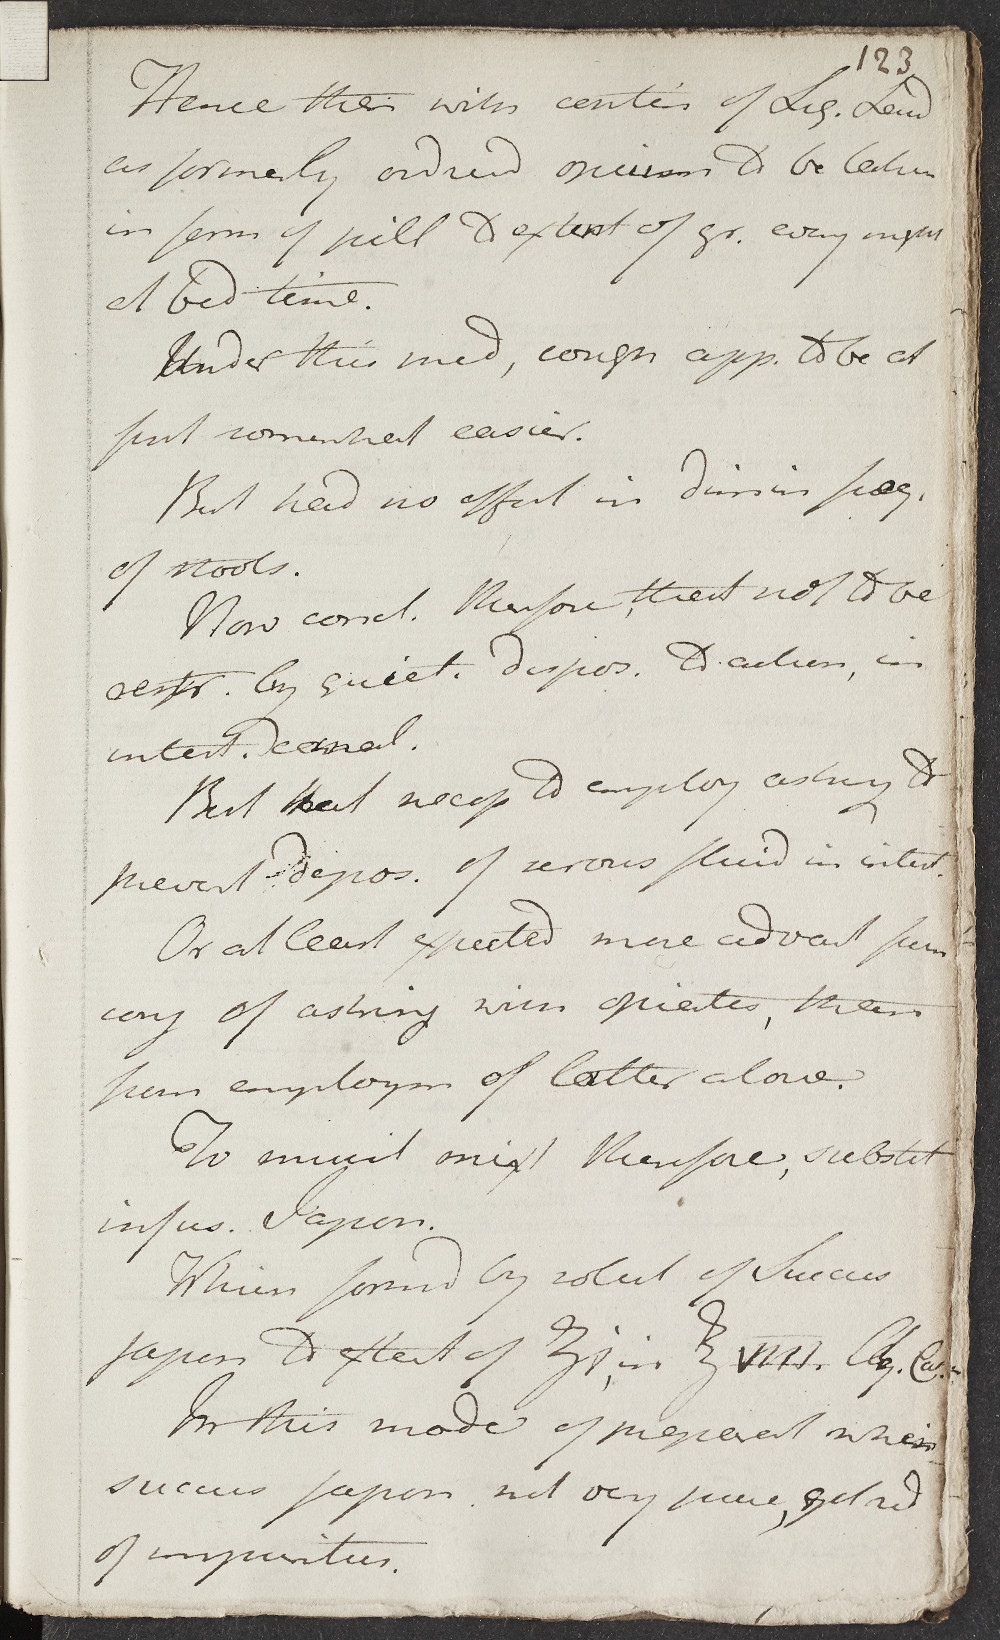 123
Hence then with contin of Lig. Laud
as formerly ordred opium to be taken
in form of pill to extent of gr. every night
at bed time.
Under this med, cough app. to be at
first somewhat easier.
But had no effect in dimin freq.
of stools.
Now concl. therefore, that not to be
restr. by quiet. dispos. to action, in
intest. canal.
But that necess to employ astring to
prevent depos. of serous fluid in intest.
Or at least expected more advant from
conj of astring with opiates, than
from employm of latter alone.
To mucil mixt therefore, substit
infus. Japon.
Which formd by solut of Succus
japon to extent of ʒj, in ℥ VIII. Aq.
In this mode of preparat when
succus japon not very pure, get rid
of impurities.